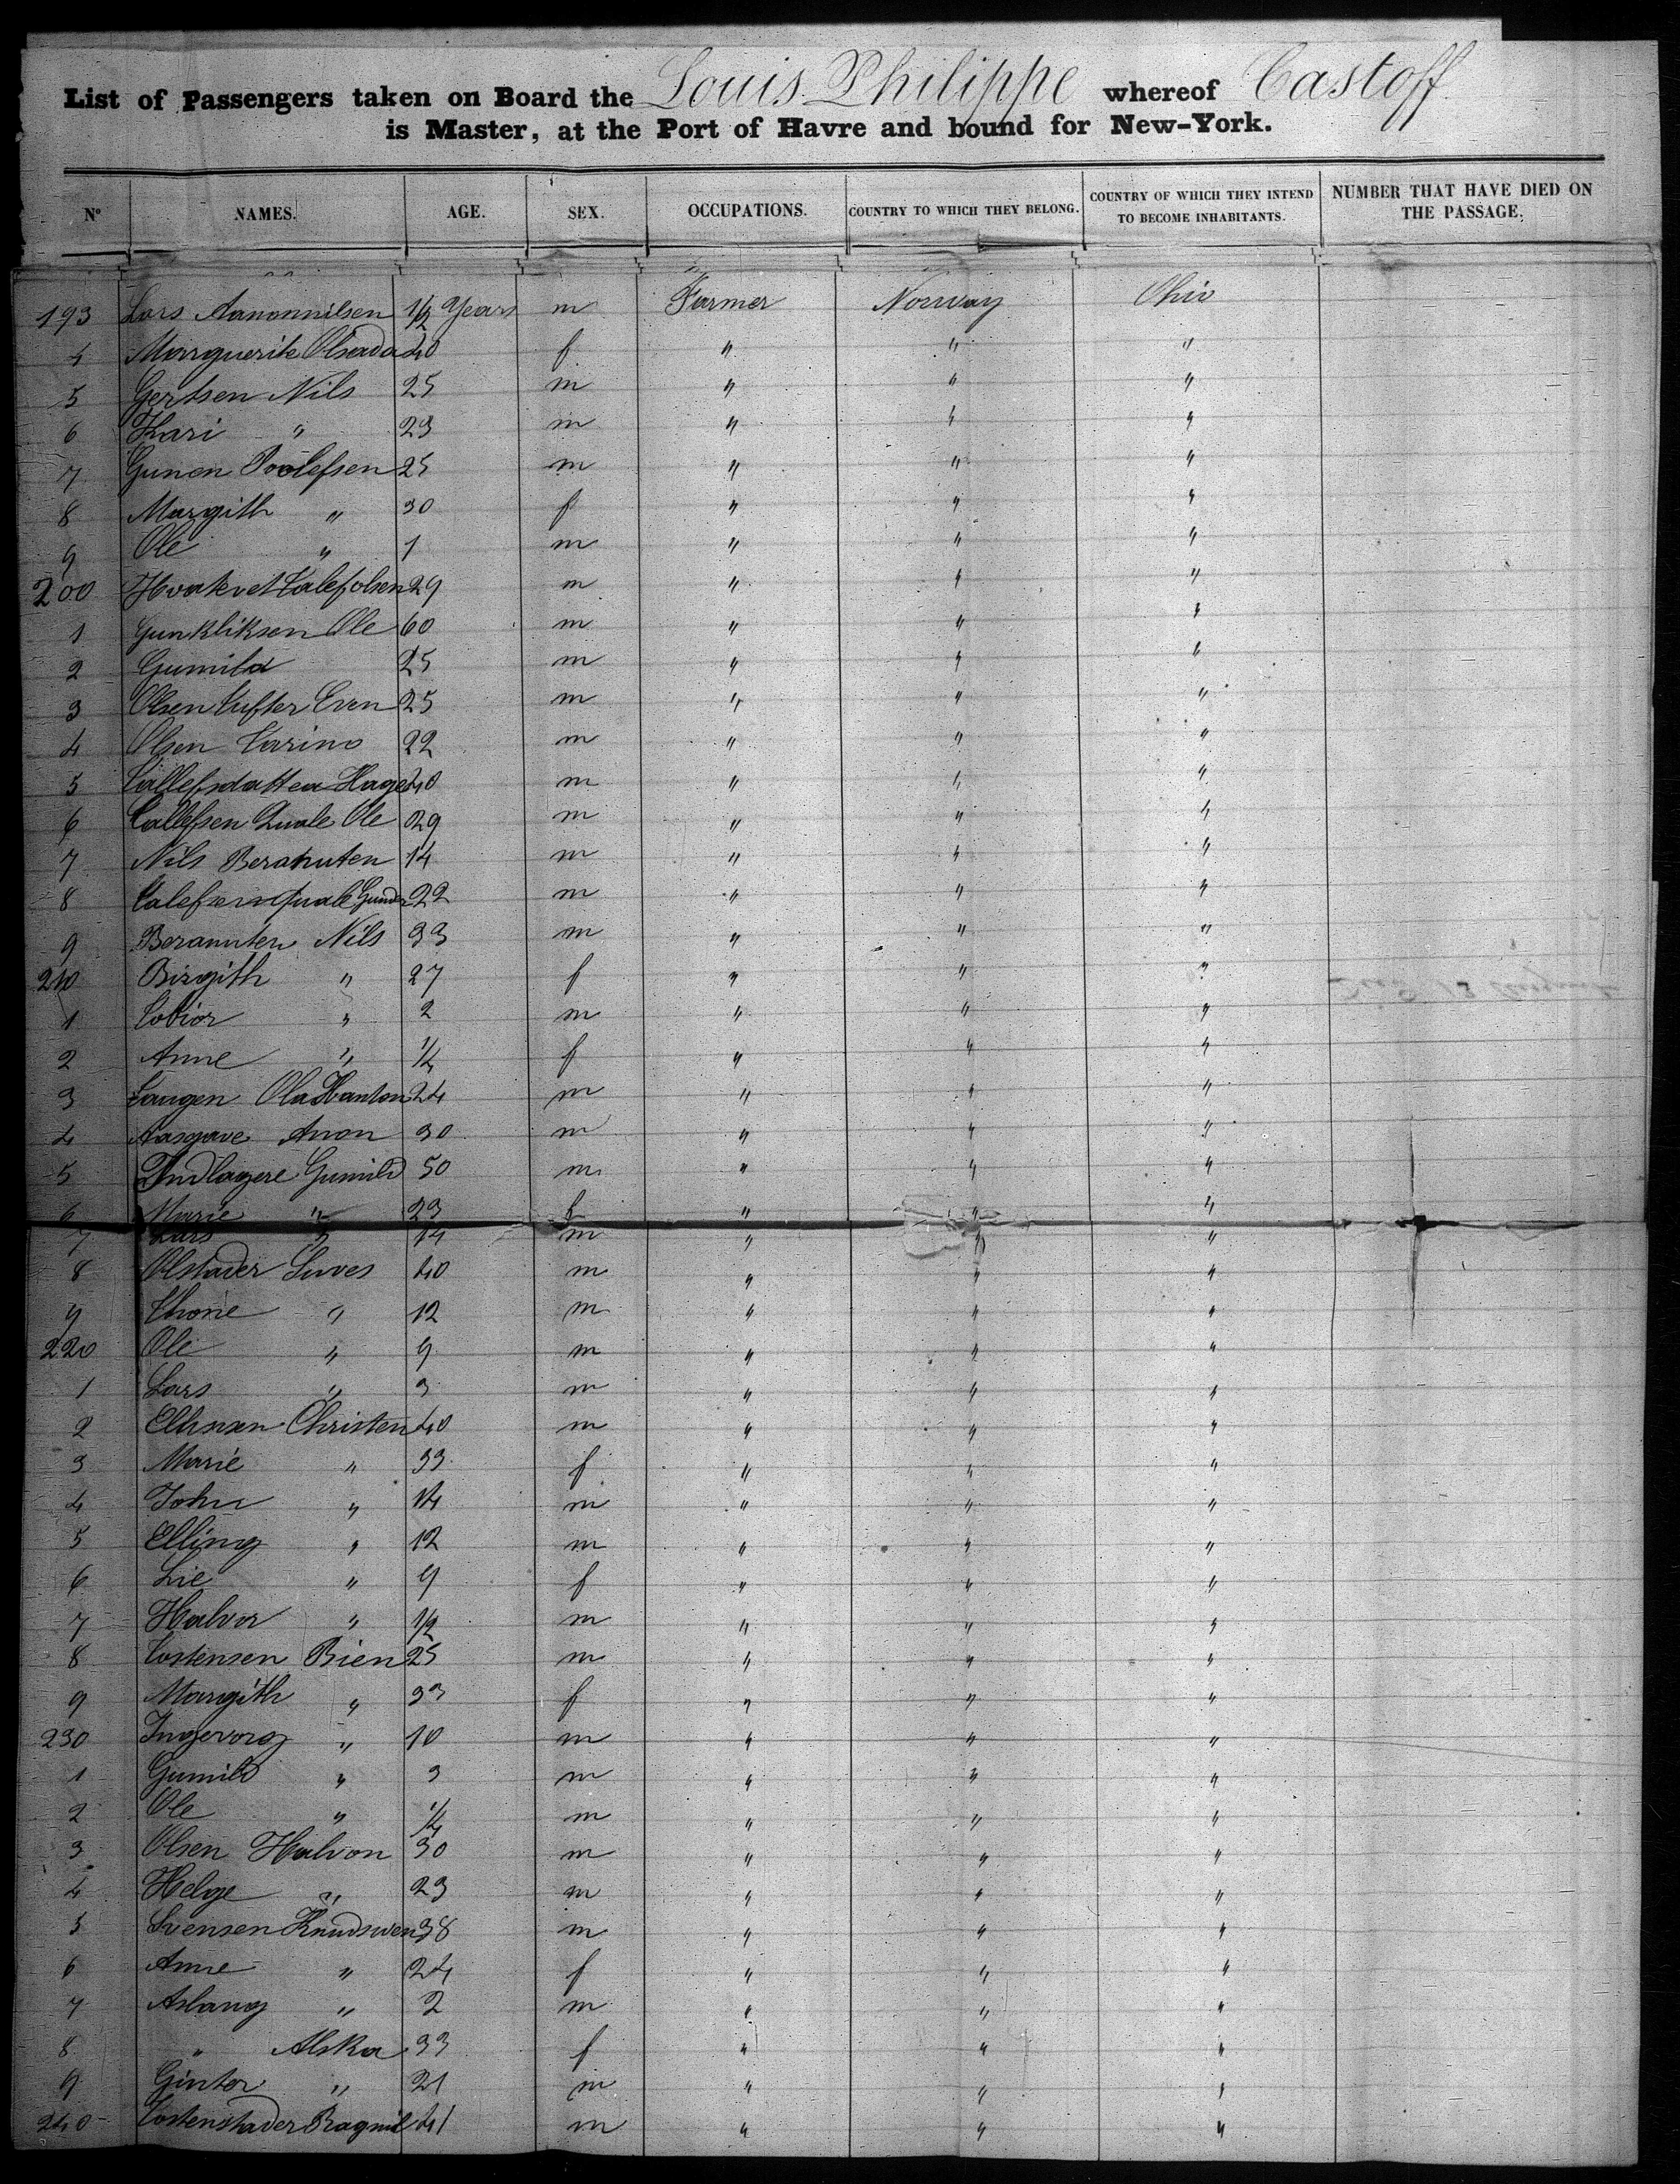 List of Passengers taken on Board the Louis Philippe whereof Castoff
is Master, at the Port of Havre and bound for New-York.
Nº NAMES. AGE. SEX. OCCUPATIONS. COUNTRY TO WHICH THEY BELONG. COUNTRY OF WHICH THEY INTEND TO BECOME INHABITANTS. NUMBER THAT HAVE DIED ON THE PASSAGE.
193 Lars Aanonnilsen 1/2 Years m Farmer Norway Ohio
4 Marguerite Olsenda 40 f " " "
5 Gertsen Nils 25 m " " "
6 Kari " 23 m " " "
7 Gunen Poolefsen 25 m " " "
8 Margith " 30 f " " "
9 Ole " 1 m " " "
200 29 m " " "
1 Gunkliksen Ole 60 m " " "
2 Gumild 25 m " " "
3 Olsen Tufter Even 25 m " " "
4 Olsen Tarino 22 m " " "
5 Tallefsdatter Hage 40 m " " "
6 Tallefsen Quale Ole 29 m " " "
7 Nils Beranuten 14 m " " "
8 Talefsen Quale Gunder 22 m " " "
9 Beranuten Nils 33 m " " "
210 Birgith " 27 f " " "
1 Tobior " 2 m " " "
2 Anne " 1/4 f " " "
3 Saugen Ola Hanton 24 m " " "
4 Aasgave Anon 30 m " " "
5 Indlagere Gumild 50 m " " "
6 Marie " 23 f " " "
7 Lars " 14 m " " "
8 Olstader Suves 40 m " " "
9 Thorie " 12 m " " "
220 Ole " 9 m " " "
1 Lars " 3 m " " "
2 Christen 40 m " " "
3 Marie " 33 f " " "
4 John " 14 m " " "
5 Elling " 12 m " " "
6 Lie " 9 f " " "
7 Halvor " 1/2 m " " "
8 Tostensen Bien 25 m " " "
9 Margith " 33 f " " "
230 Ingevorg " 10 m " " "
1 Gumild " 3 m " " "
2 Ole " 1/4 m " " "
3 Olsen Halvon 30 m " " "
4 Helge " 23 m " " "
5 Svensen Knudswen 38 m " " "
6 Anne " 24 f " " "
7 Aslaug " 2 m " " "
8 " Alska 33 f " " "
9 Gintor " 21 m " " "
240 Tostenstader Ragnil 41 m " " "